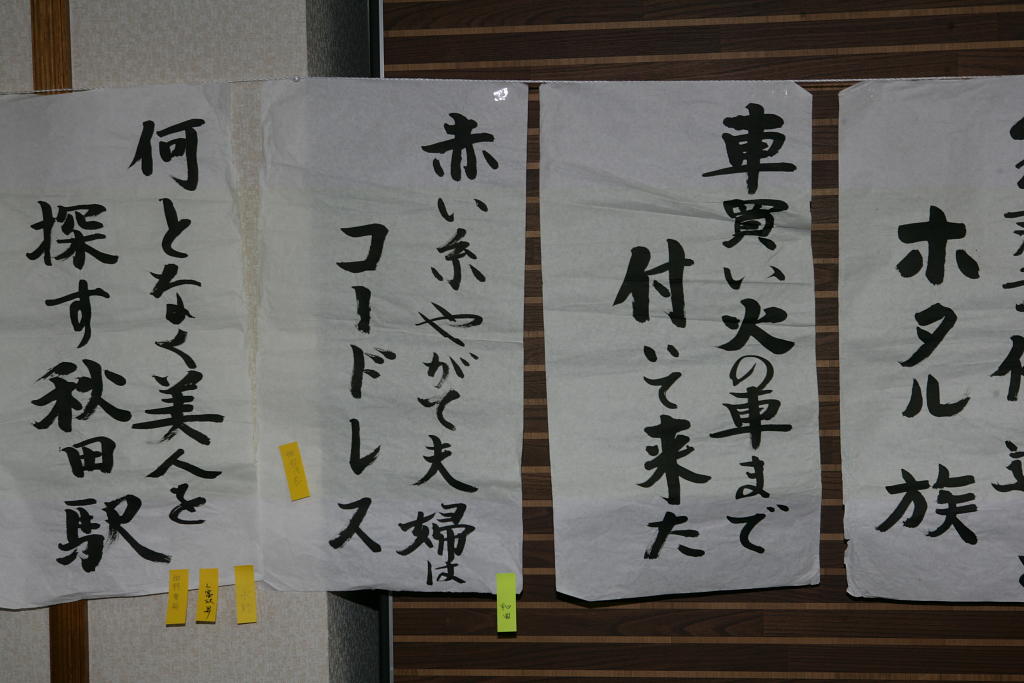 ホタル族
車買い火の車まで
付いて来た
赤い糸やがて夫婦は
コードレス
何となく美人を
探す秋田駅
和田